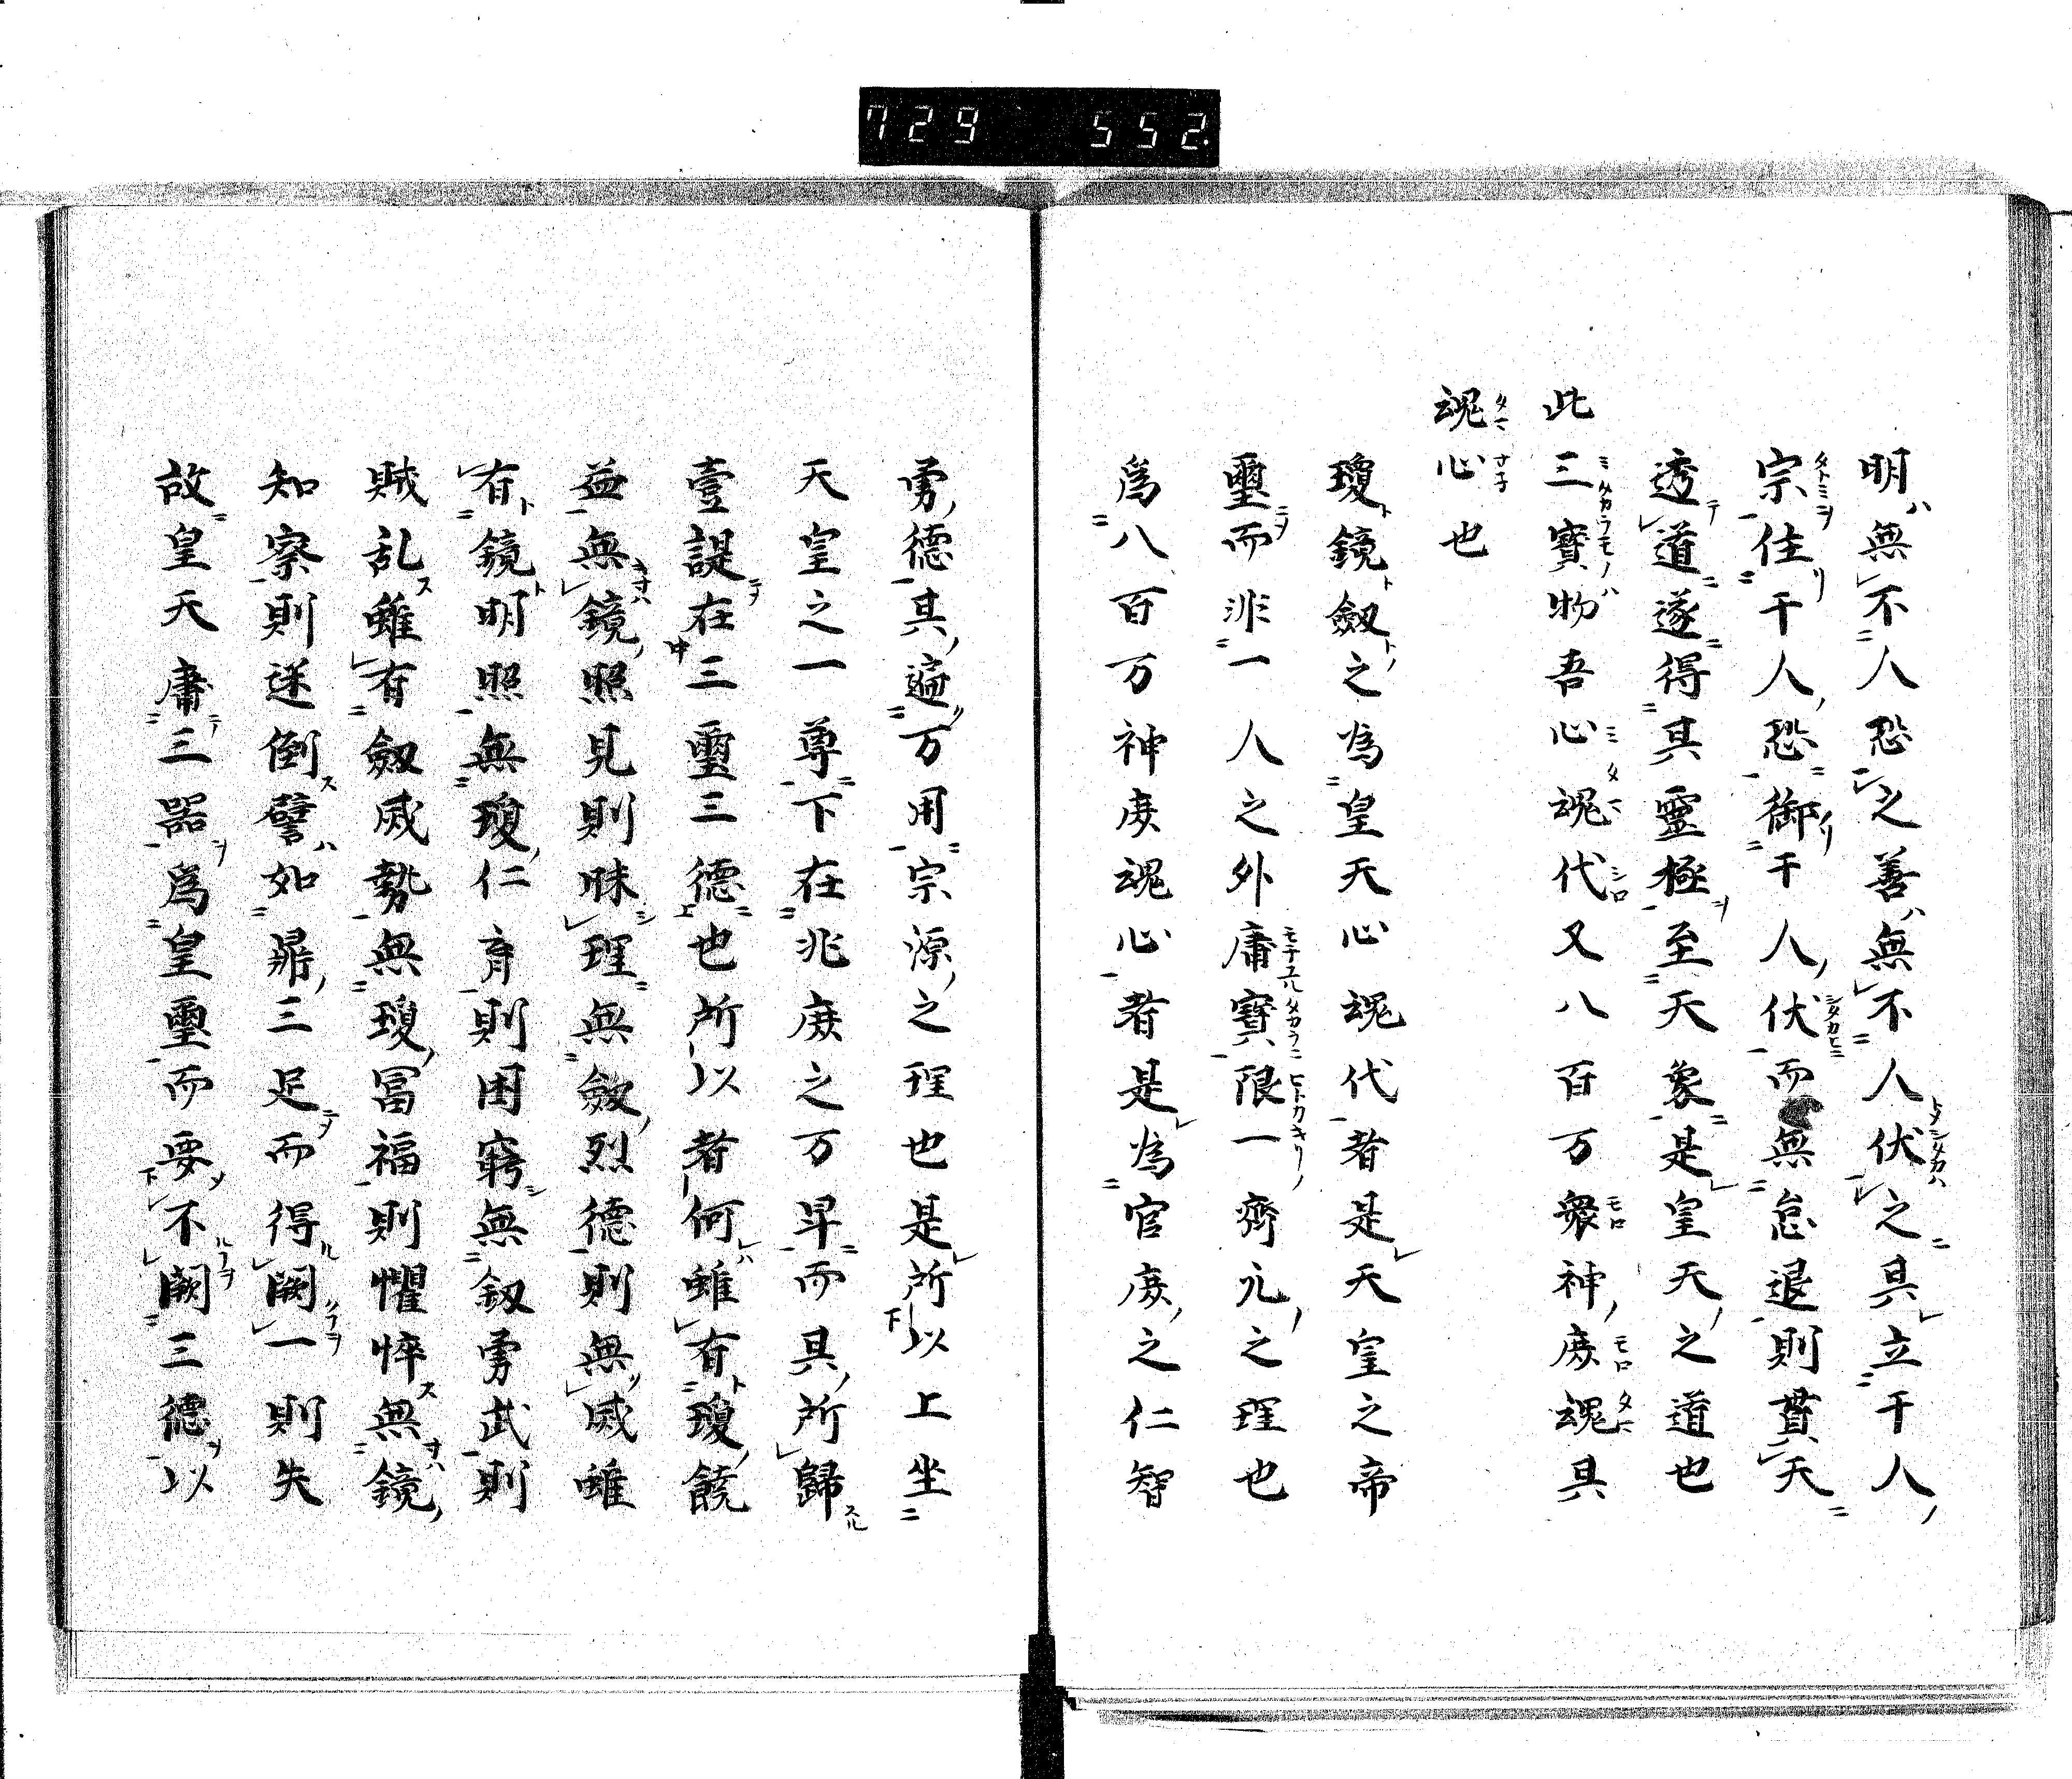 729 552.
明無不人恐之善無不人伏之具立千人
宗住千人恐御千人伏而無怠退則貫天
透道遂得其靈極至天象是皇天之道也
此三寶物吾心魂代又八百万衆神庶魂具
魂心也
瓊鏡劔之為皇天心魂代者是天皇之帝
璽而非一人之外庸寶限一齊元之理也
爲八百万神庶魂心者是為官庶之仁智
勇德其遍万用宗源之理也是所以上坐
天皇之一尊下在兆庶之万早而具所歸
壹諟在三璽三德也所以者何雖有瓊饒
益無鏡照見則昧理無劔烈德則無威雖
有鏡明照無瓊仁育則困窮無釼勇武則
賊乱雖有劔威勢無瓊冨福則懼悴無鏡
知察則迷倒譬如鼎三足而得闕一則失
故皇天庸三器爲皇璽而要不闕三德以